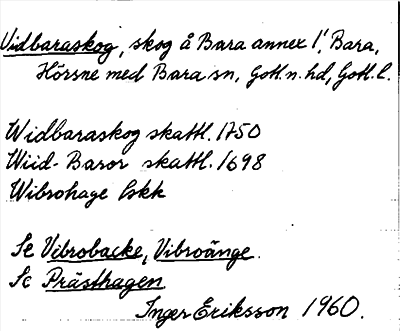 Vidbaraskog, skog å Bara annex 1', Bara,
Hörsne med Bara sn, Gotl. n. hd, Gotl. l.
Widbaraskog skattl. 1750
Wiid-Baror skattl. 1698
Wibrohage lskk
Se Vibrobacke, Vibroänge.
Se Prästhagen
Inger Eriksson 1960.